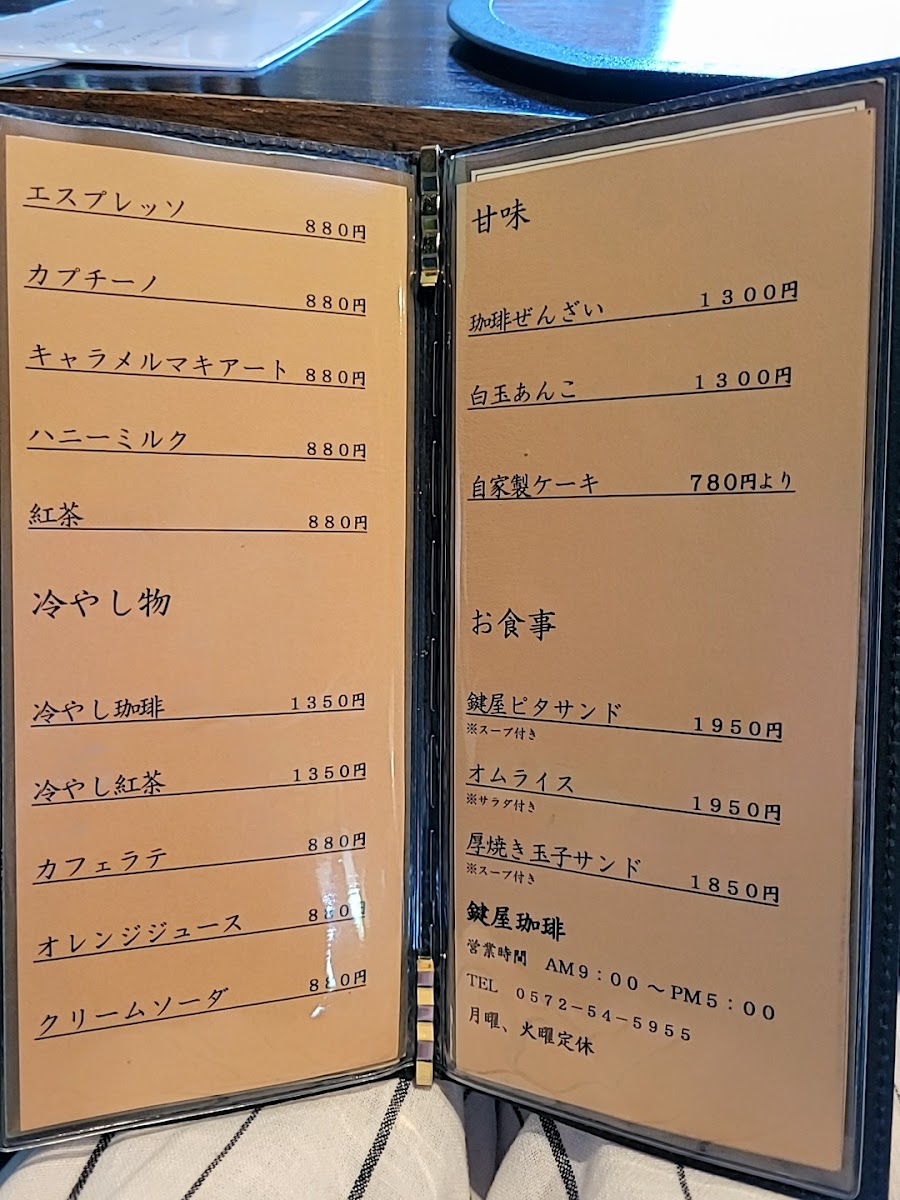 エスプレッソ 880円
カプチーノ 880円
キャラメルマキアート 880円
ハニーミルク 880円
紅茶 880円
冷やし物
冷やし珈琲 1350円
冷やし紅茶 1350円
カフェラテ 880円
オレンジジュース 880円
クリームソーダ 880円
甘味
珈琲ぜんざい 1300円
白玉あんこ 1300円
自家製ケーキ 780円より
お食事
鍵屋ピタサンド 1950円
※スープ付き
オムライス 1950円
※サラダ付き
厚焼き玉子サンド 1850円
※スープ付き
鍵屋珈琲
営業時間 AM9:00～PM5:00
TEL 0572-54-5955
月曜、火曜定休